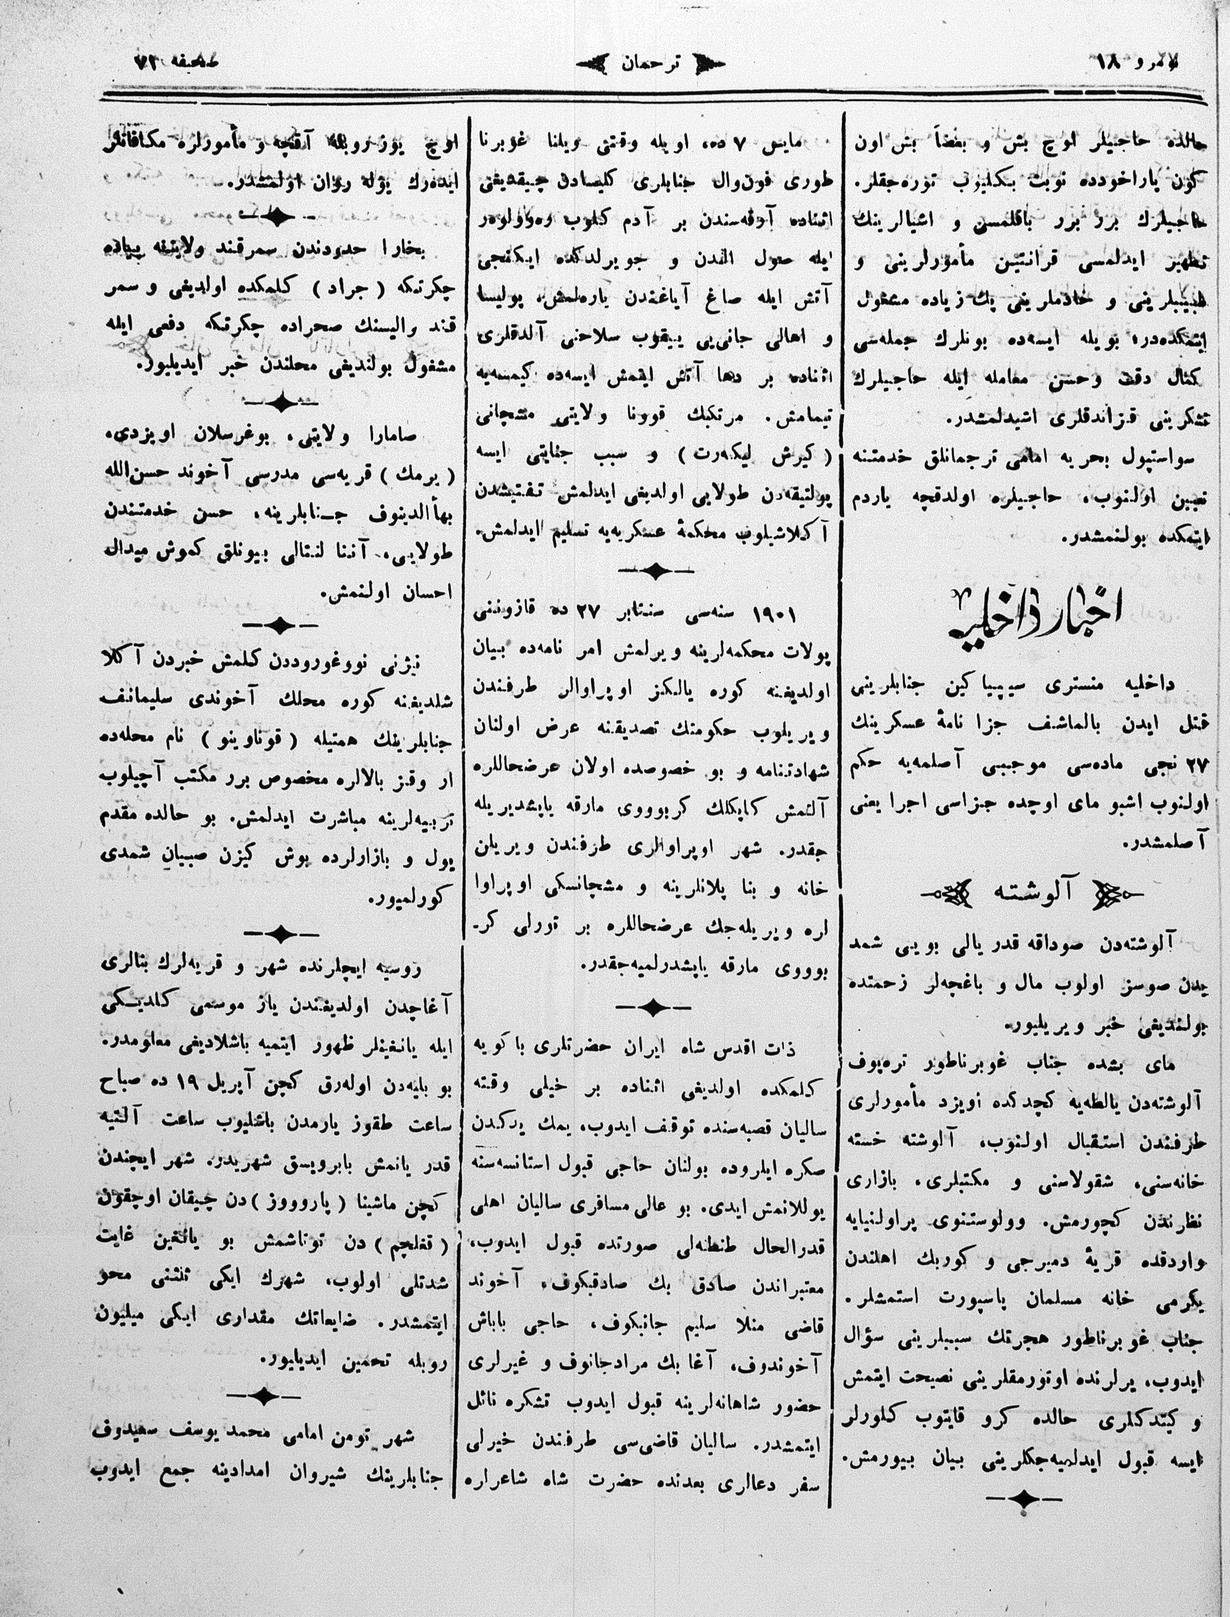 نومرو ١٨
ترجمان
صحيفه ٧٢
حالده حاجيلر اوچ بش و بعضاً بش اون
كون پاراخودده نوبت بكليوب توره‌جقلر.
حاجيلرك برر برر باقلمسى و اشيالرينك
تطهير ايدلمسى قرانتين مأمورلرينى و
طبيبلرينى و خادملرينى پك زياده مشغول
ايتمكده‌در. بويله ايسه‌ده بونلرك جمله‌سى
كمال دقت وحسن معامله ايله حاجيلرك
تشكرينى قزاندقلرى اشيدلمشدر.
سواستپول بحريه امامى ترجمانلق خدمتنه
تعيين اولنوب، حاجيلره اولدقچه ياردم
ايتمكده بولنمشدر.
اخبار داخليه
داخليه منسترى سيپياكين جنابلرينى
قتل ايدن بالماشف جزا نامهٔ عسكرينك
٢٧ نجى ماده‌سى موجبى آصلمه‌يه حكم
اولنوب اشبو ماى اوچده جزاسى اجرا يعنى
آصلمشدر.
آلوشته
آلوشته‌دن صوداقه قدر يالى بويى شمد
يدن صوسز اولوب مال و باغچه‌لر زحمتده
بولنديغى خبر ويريليور.
ماى بشده جناب غوبرناطور تره‌پوف
آلوشته‌دن يالطه‌يه كچدكده اويزد مأمورلرى
طرفندن استقبال اولنوب، آلوشته خسته
خانه‌سنى، شقولاسنى و مكتبلرى، بازارى
نظرندن كچورمش. وولوستنوى پراولنيايه
واردقده قريهٔ دميرجى و كوربك اهلندن
يكرمى خانه مسلمان پاسپورت استمشلر.
جناب غوبرناطور هجرتك سببلرينى سؤال
ايدوب، يرلرنده اوتورمقلرينى نصيحت ايتمش
و كيتدكلرى حالده كرو قايتوب كلورلر
ايسه قبول ايدلميه‌جكلرينى بيان بيورمش.
مايس ٧ ده، اويله وقتنى ويلنا غوبرنا
طورى فون‌وال جنابلرى كليسادن چيقديغى
اثناده آرقه‌سندن بر آدم كلوب ره‌وولوه‌ر
ايله صول الندن و جويرلدكده ايكنجى
آتش ايله صاغ آياغندن ياره‌لمش، پوليسا
و اهالى جانى‌يى ييقوب سلاحنى آلدقلرى
اثناده بر دها آتش ايتمش ايسه‌ده كيمسه‌يه
تيمامش. مرتكبك قوونا ولايتى مشچانى
(كيرش ليكه‌رت) و سبب جنايتى ايسه
پولتيقه‌دن طولايى اولديغى ايدلمش تفتيشدن
آكلاشيلوب محكمهٔ عسكريه‌يه تسليم ايدلمش.
١٩٠١ سنه‌سى سنتابر ٢٧ ده قازوننى
پولات محكمه‌لرينه ويرلمش امر نامه‌ده بيان
اولديغنه كوره يالكز اوپراوالر طرفندن
ويريلوب حكومتك تصديقنه عرض اولنان
شهادتنامه و بو خصوصده اولان عرضحاللره
آلتمش كاپكلك كربوووى مارقه ياپشديريله
جقدر. شهر اوپراوالرى طرفندن ويريلن
خانه و بنا پلانلرينه و مشچانسكى اوپراوا
لره ويريله‌جك عرضحاللره بر تورلى كر-
بوووى مارقه ياپشدرلميه‌جقدر.
ذات اقدس شاه ايران حضرتلرى باكويه
كلمكده اولديغى اثناده بر خيلى وقته
ساليان قصبه‌سنده توقف ايدوب، يمك يدكدن
صكره ايلروده بولنان حاجى قبول استانسه‌سنه
يوللانمش ايدى. بو عالى مسافرى ساليان اهلى
قدرالحال طنطنه‌لى صورتده قبول ايدوب،
معتبراندن صادق بك صادقبكوف، آخوند
قاضى منلا سليم جانبكوف، حاجى باباش
آخوندوف، آغا بك مرادجانوف و غيرلرى
حضور شاهانه‌لرينه قبول ايدوب تشكره نائل
ايتمشدر. ساليان قاضى‌سى طرفندن خيرلى
سفر دعالرى بعدنده حضرت شاه شاعراره
اوچ يوز روبله آقچه و مأمورلره مكافاتلر
ايده‌رك يوله روان اولمشدر.
بخارا حدودندن سمرقند ولايتنه پياده
چكرتكه (جراد) كلمكده اولديغى و سمر
قند واليسنك صحراده چكرتكه دفعى ايله
مشغول بولنديغى محلندن خبر ايديليور.
صامارا ولايتى، بوغرسلان اويزدى،
(يرمك) قريه‌سى مدرسى آخوند حسن‌الله
بهأالدينوف جـنابلرينه، حسن خدمتندن
طولايى، آننا لنتالى بيونلق كموش ميدال
احسان اولنمش.
نيژنى نووغوروددن كلمش خبردن آكلا
شلديغنه كوره محلك آخوندى سليمانف
جنابلرينك همتيله (قوناوينو) نام محله‌ده
ار وقز بالالره مخصوص برر مكتب آچيلوب
تربيه‌لرينه مباشرت ايدلمش. بو حالده مقدم
يول و بازارلرده بوش كيزن صبيان شمدى
كورلميور.
روسيه ايچلرنده شهر و قريه‌لرك بنالرى
آغاچدن اولديغندن ياز موسمى كلديـكى
ايله يانغينلر ظهور ايتميه باشلاديغى معلومدر.
بو بليه‌دن اوله‌رق كچن آپريل ١٩ ده صباح
ساعت طقوز يارمدن باشليوب ساعت آلتيه
قدر يانمش بابرويسق شهريدر. شهر ايچندن
كچن ماشينا (پاروووز) دن چيقان اوچقون
(قغلچم) دن توتاشمش بو يانغين غايت
شدتلى اولوب، شهرك ايكى ثلثنى محو
ايتمشدر. ضايعاتك مقدارى ايكى ميليون
روبله تخمين ايديليور.
شهر تومن امامى محمد يوسف سعيدوف
جنابلرينك شيروان امدادينه جمع ايدوب